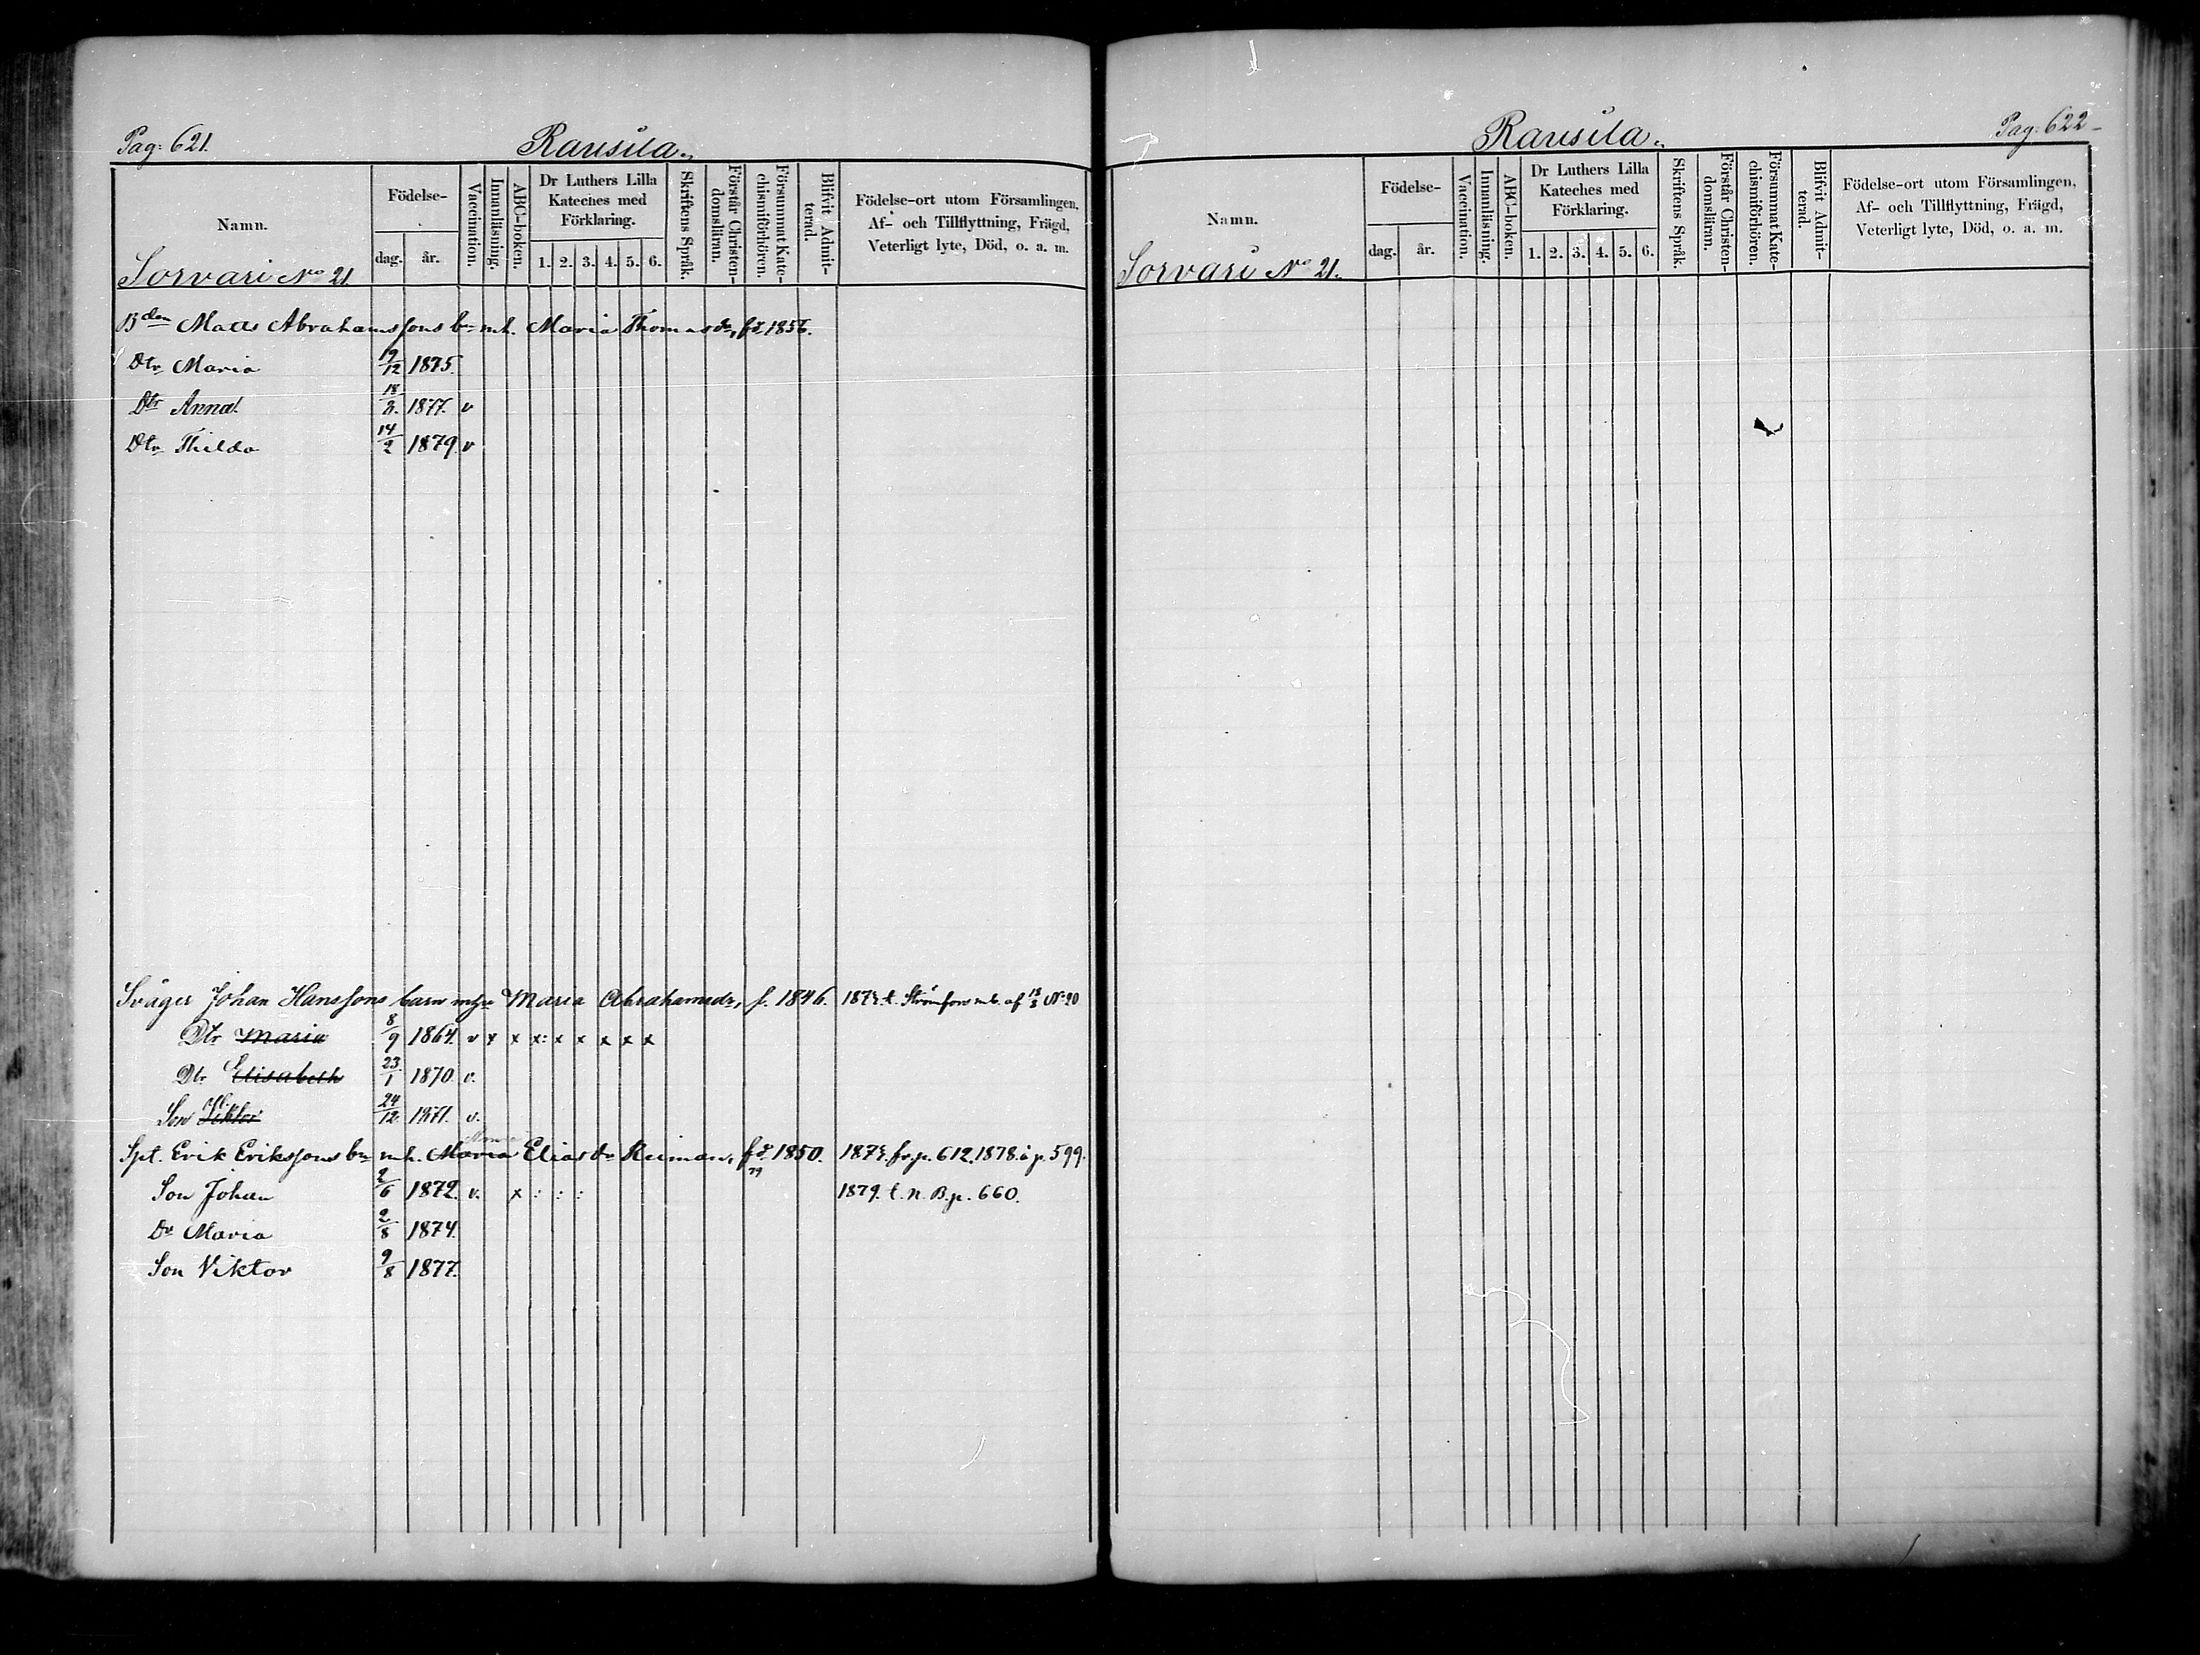 Pag: 621.
Rausila.
Namn.
Födelse-
dag.
år.
Vaccination.
Innanläsning.
ABC-boken.
Dr Luthers Lilla
Kateches med
Förklaring.
1. 2. 3. 4. 5. 6.
Skriftens Språk.
Förstår Christen-
domsläran.
Försummat Kate-
chismiförhören.
Blifvit Admit-
terad.
Födelse-ort utom Församlingen,
Af- och Tillflyttning, Frägd,
Veterligt lyte, Död, o. a. m.
Sorvari No 21
Bden Matts Abrahamssons bn m.h. Maria Thomasdr, fd 1856.
Dtr Maria 19/12 1875.
Dtr Anna 18/3. 1877. v
Dtr Thilda 14/2 1879 v
Svåger Johan Hanssons barn m hu Maria Abrahamsdr, f. 1846. 1875. t. Strömfors mb. af 13/3 No 20
Dtr Maria 8/9 1864. v x x x: x x x x x
Dtr Elisabeth 23/1 1870. v.
Son Viktor 24/12 1871. v.
Spt. Erik Erikssons bn m.h. Maria Eliasdr Reiman, fd 1850. 1875. fr. p. 612. 1878. i p. 599.
Son Johan 2/6 1872. v. x : : : 1879. t. n. B. p. 660.
Dr Maria 2/8 1874.
Son Viktor 9/8 1877.
Pag: 622
Rausila.
Namn.
Födelse-
dag.
år.
Vaccination.
Innanläsning.
ABC-boken.
Dr Luthers Lilla
Kateches med
Förklaring.
1. 2. 3. 4. 5. 6.
Skriftens Språk.
Förstår Christen-
domsläran.
Försummat Kate-
chismiförhören.
Blifvit Admit-
terad.
Födelse-ort utom Församlingen,
Af- och Tillflyttning, Frägd,
Veterligt lyte, Död, o. a. m.
Sorvari No 21.